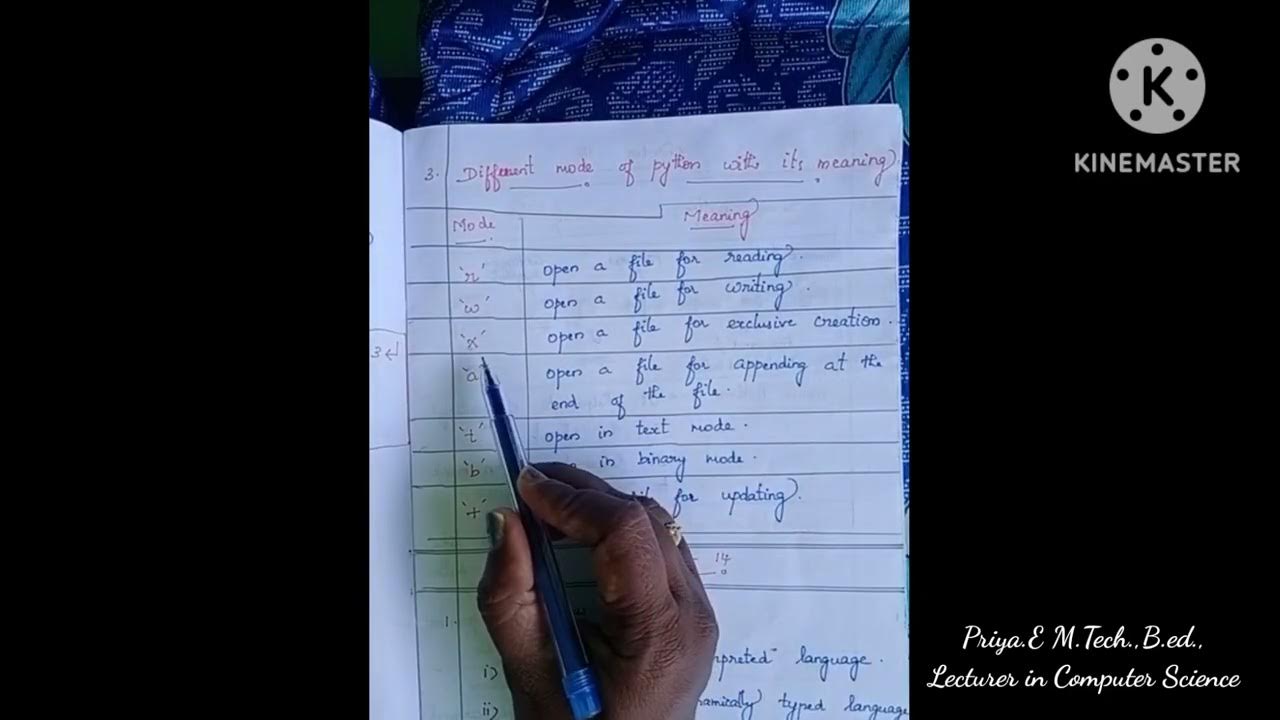 KINEMASTER
3. Different mode of python with its meaning.
Mode Meaning
'r' open a file for reading.
'w' open a file for writing.
'x' open a file for exclusive creation.
'a' open a file for appending at the
end of the file.
't' open in text mode.
'b' in binary mode.
'+' file for updating.
3
14
1.
i) language.
ii) typed language
Priya.E M.Tech.,B.ed.,
Lecturer in Computer Science